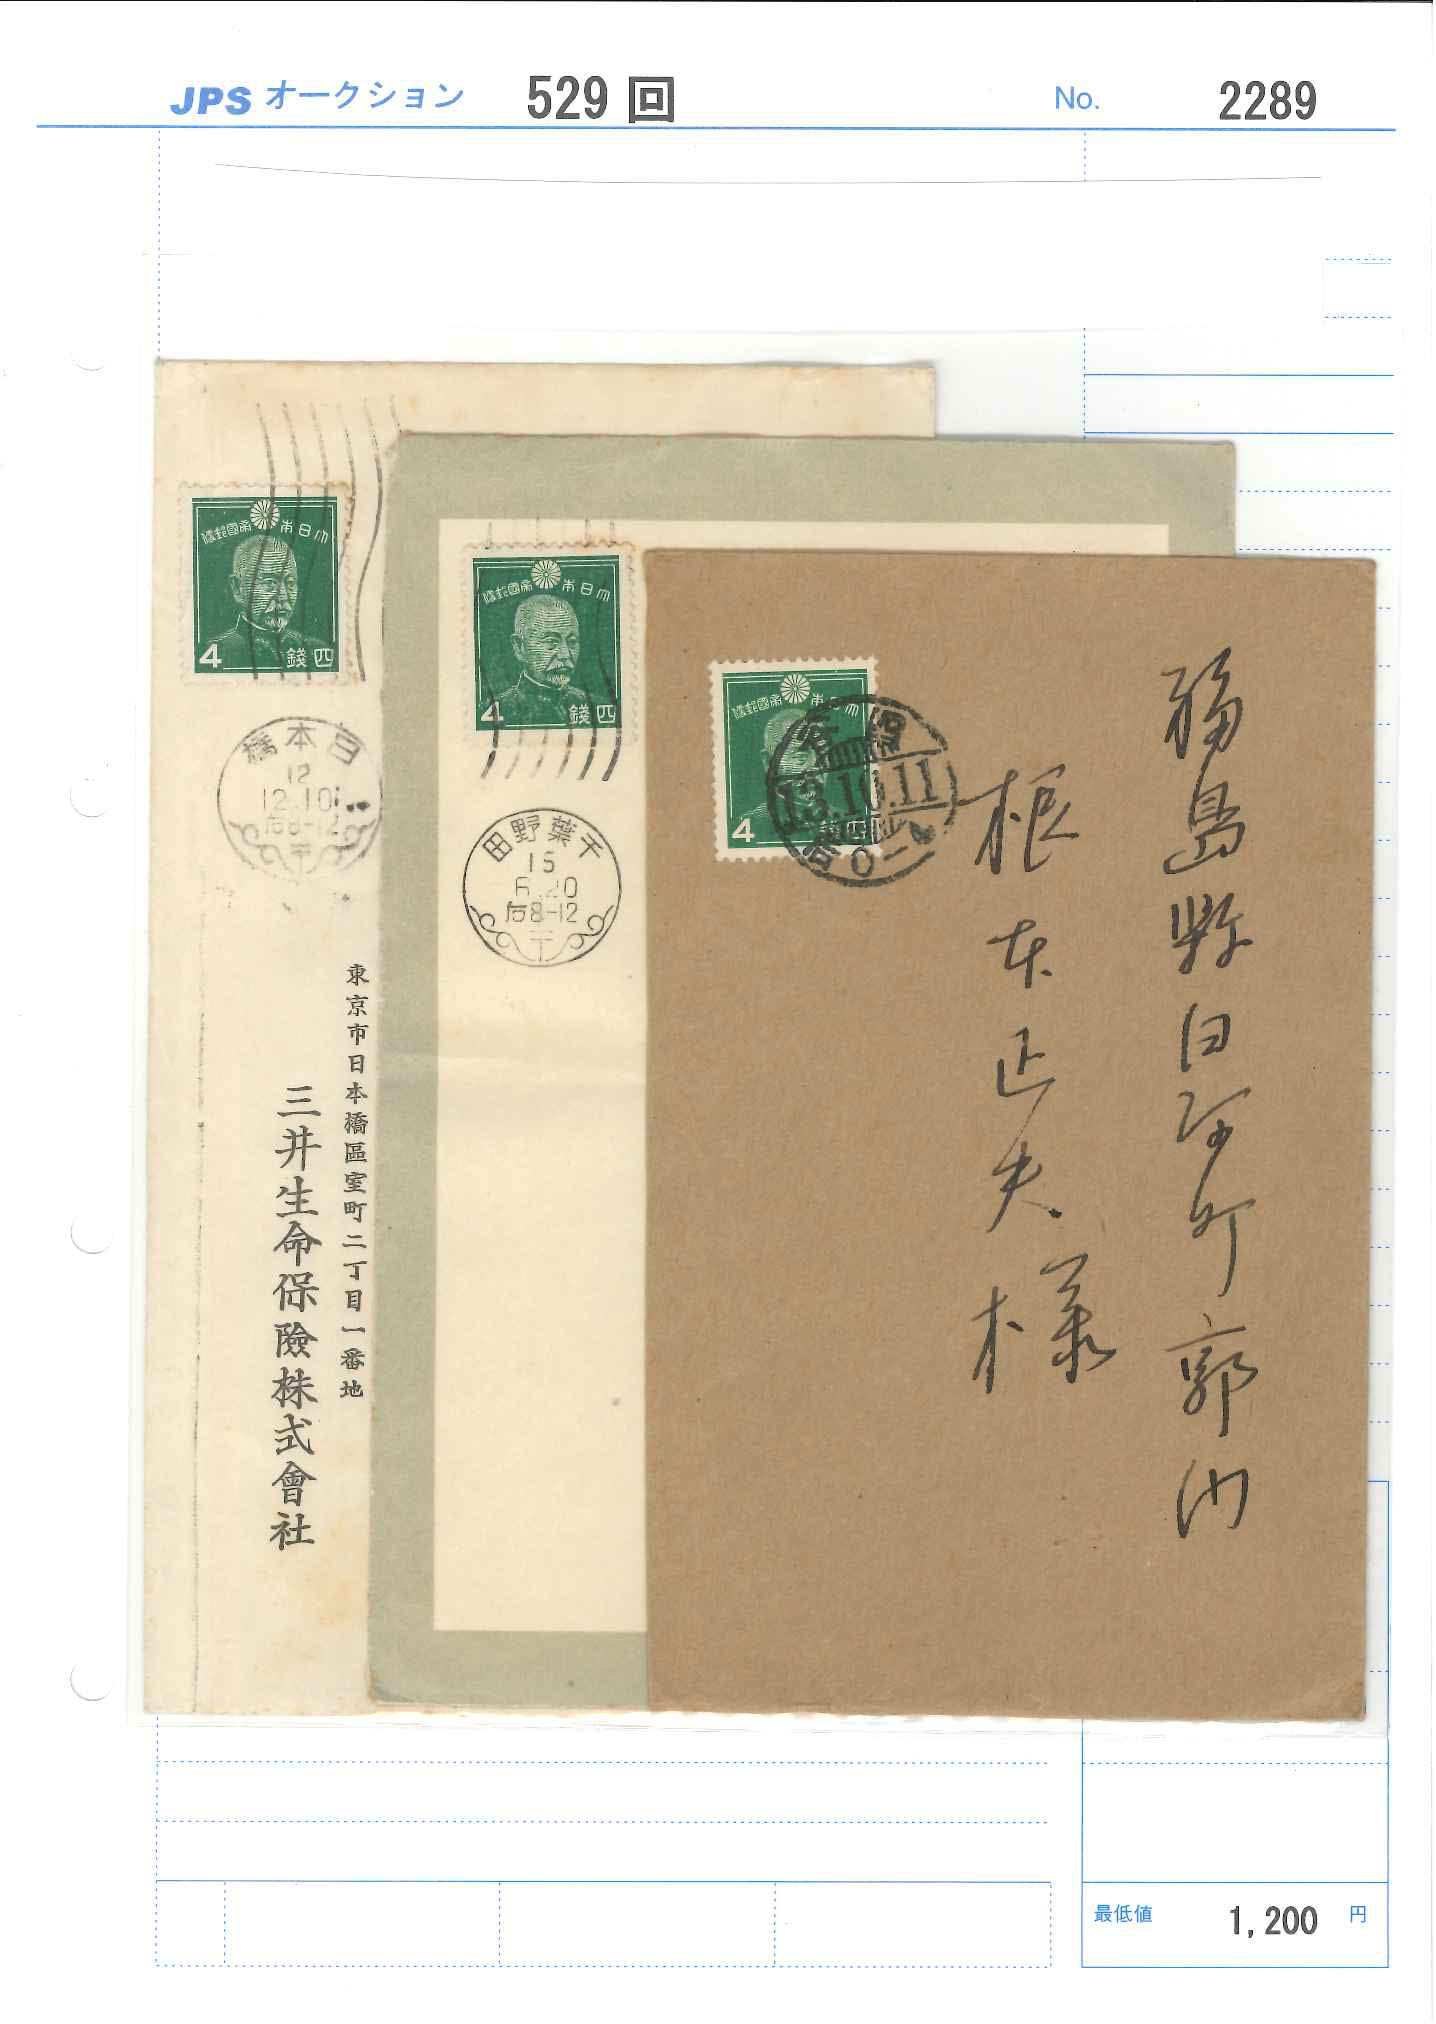 JPS オークション 529 回 No. 2289
大日本帝國郵便
4 錢四
日本橋
12
12.10
后8-12
東京市日本橋區室町二丁目一番地
三井生命保險株式會社
大日本帝國郵便
4 錢四
千葉野田
15
6.20
后8-12
大日本帝國郵便
4
13.10.11
福島縣白河町郭内
根本正夫様
最低値 1,200 円